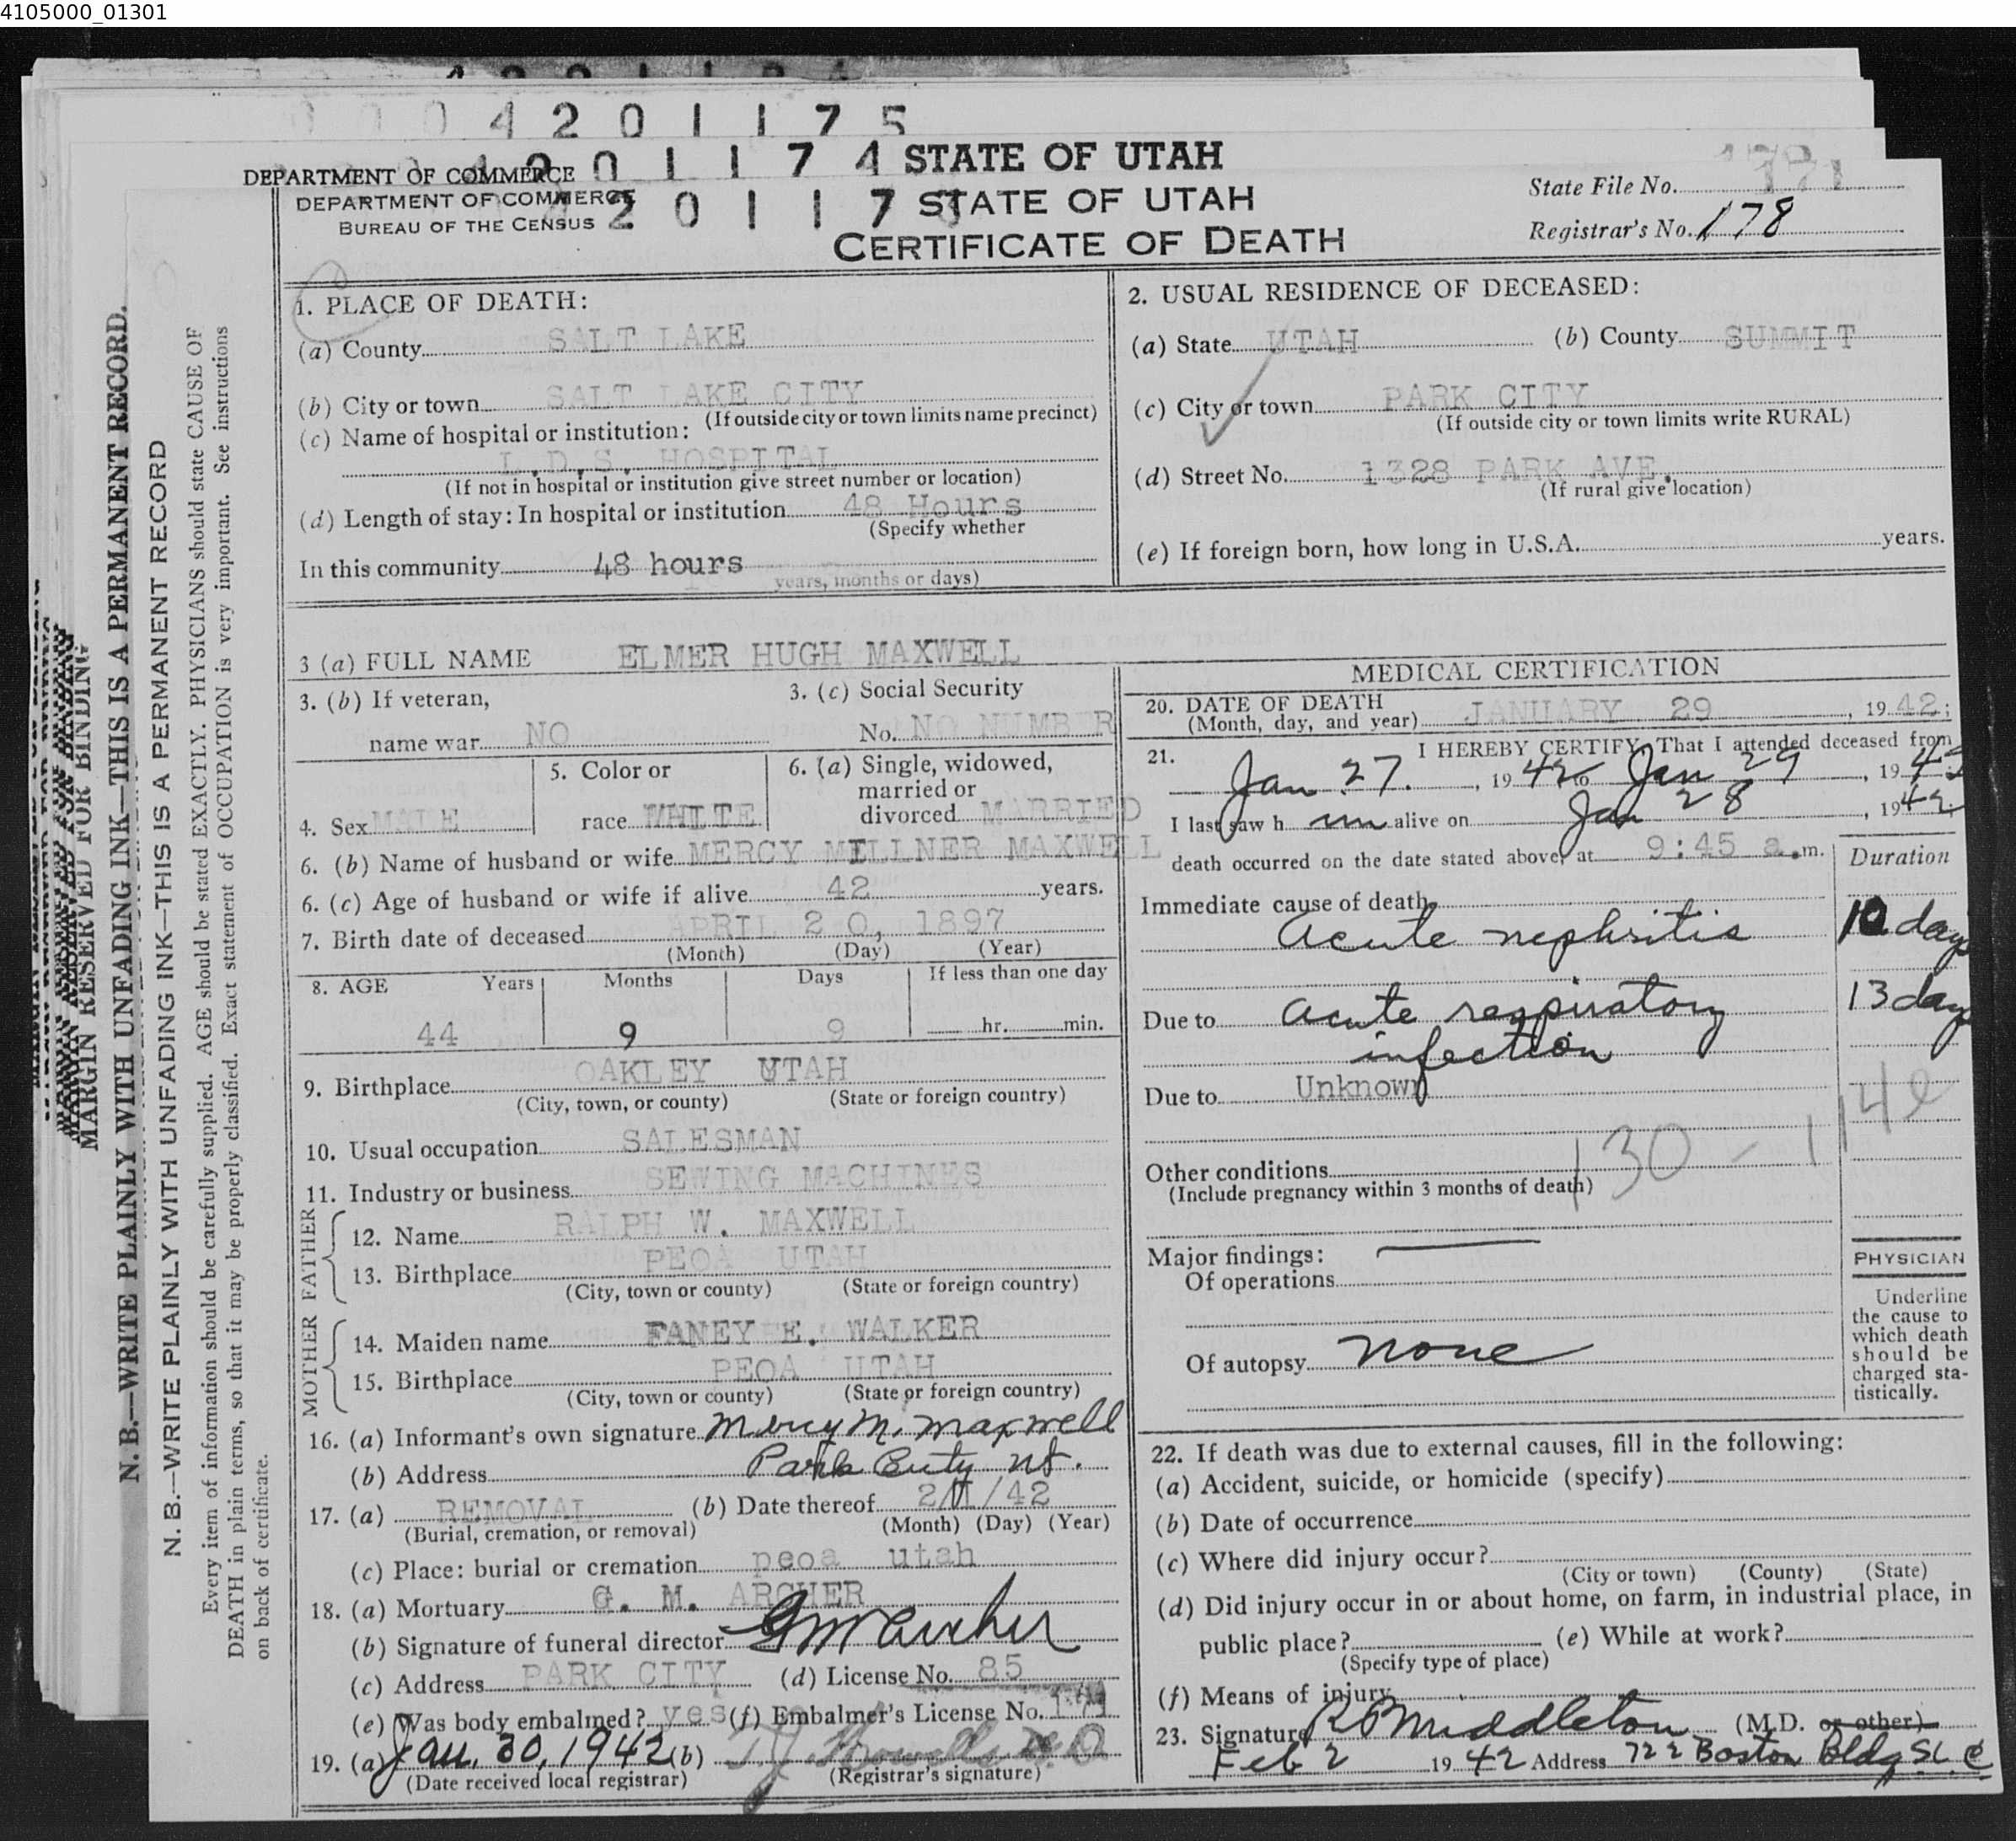 4105000_01301
4 2 0 1 1 7 5
4 2 0 1 1 7 4 STATE OF UTAH
DEPARTMENT OF COMMERCE
DEPARTMENT OF COMMERCE 4 2 0 1 1 7 STATE OF UTAH
BUREAU OF THE CENSUS
CERTIFICATE OF DEATH
State File No.
Registrar's No. 178
MARGIN RESERVED FOR BINDING
N. B.—WRITE PLAINLY WITH UNFADING INK—THIS IS A PERMANENT RECORD.
N. B.—WRITE PLAINLY WITH UNFADING INK—THIS IS A PERMANENT RECORD
Every item of information should be carefully supplied. AGE should be stated EXACTLY. PHYSICIANS should state CAUSE OF
DEATH in plain terms, so that it may be properly classified. Exact statement of OCCUPATION is very important. See instructions
on back of certificate.
1. PLACE OF DEATH:
(a) County SALT LAKE
(b) City or town SALT LAKE CITY
(If outside city or town limits name precinct)
(c) Name of hospital or institution:
L.D.S. HOSPITAL
(If not in hospital or institution give street number or location)
(d) Length of stay: In hospital or institution 48 Hours
(Specify whether
In this community 48 hours
years, months or days)
2. USUAL RESIDENCE OF DECEASED:
(a) State UTAH (b) County SUMMIT
(c) City or town PARK CITY
(If outside city or town limits write RURAL)
(d) Street No. 1328 PARK AVE.
(If rural give location)
(e) If foreign born, how long in U.S.A. years.
3 (a) FULL NAME ELMER HUGH MAXWELL
3. (b) If veteran, 3. (c) Social Security
name war NO No. NO NUMBER
5. Color or 6. (a) Single, widowed,
married or
4. Sex MALE race WHITE divorced MARRIED
6. (b) Name of husband or wife MERCY MILLNER MAXWELL
6. (c) Age of husband or wife if alive 42 years.
7. Birth date of deceased APRIL 20, 1897
(Month) (Day) (Year)
8. AGE Years Months Days If less than one day
44 9 9 hr. min.
9. Birthplace OAKLEY UTAH
(City, town, or county) (State or foreign country)
10. Usual occupation SALESMAN
11. Industry or business SEWING MACHINES
FATHER
12. Name RALPH W. MAXWELL
13. Birthplace PEOA UTAH
(City, town or county) (State or foreign country)
MOTHER
14. Maiden name FANEY E. WALKER
15. Birthplace PEOA UTAH
(City, town or county) (State or foreign country)
16. (a) Informant's own signature Mercy M. Maxwell
(b) Address Park City Ut.
17. (a) REMOVAL (b) Date thereof 2/1/42
(Burial, cremation, or removal) (Month) (Day) (Year)
(c) Place: burial or cremation peoa utah
18. (a) Mortuary G. M. ARCHER
(b) Signature of funeral director G M Archer
(c) Address PARK CITY (d) License No. 85
(e) Was body embalmed? yes (f) Embalmer's License No.
19. (a) Jan. 30, 1942 (b)
(Date received local registrar) (Registrar's signature)
MEDICAL CERTIFICATION
20. DATE OF DEATH
(Month, day, and year) JANUARY 29, 1942;
21. I HEREBY CERTIFY, That I attended deceased from
Jan 27., 1942 to Jan 29, 1942
I last saw h im alive on Jan 28, 1942
death occurred on the date stated above, at 9:45 a.m. Duration
Immediate cause of death
Acute nephritis 10 days
Due to Acute respiratory 13 days
infection
Due to Unknown
130 - 114e
Other conditions
(Include pregnancy within 3 months of death)
Major findings:
Of operations
Of autopsy none
PHYSICIAN
Underline
the cause to
which death
should be
charged sta-
tistically.
22. If death was due to external causes, fill in the following:
(a) Accident, suicide, or homicide (specify)
(b) Date of occurrence
(c) Where did injury occur?
(City or town) (County) (State)
(d) Did injury occur in or about home, on farm, in industrial place, in
public place? (e) While at work?
(Specify type of place)
(f) Means of injury
23. Signature R P Middleton (M.D. or other)
Feb 2 1942 Address 722 Boston Bldg SLC